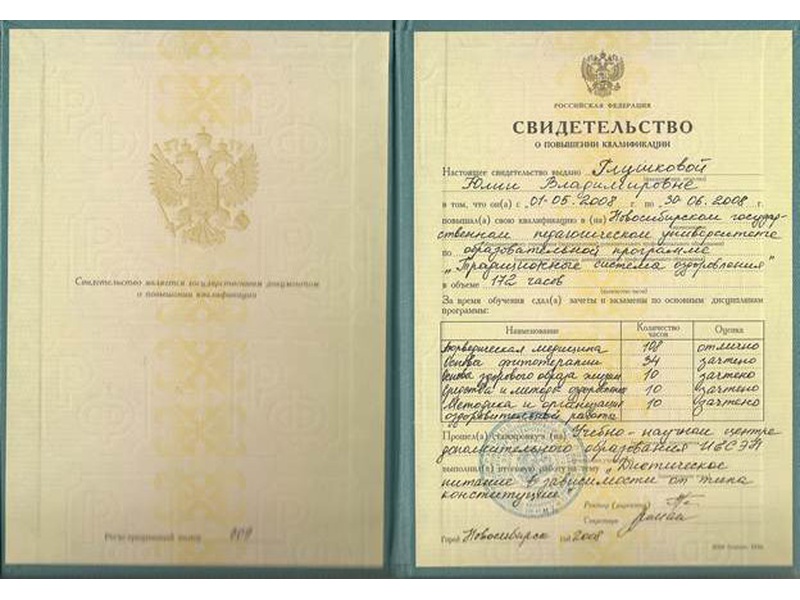 Свидетельство является государственным документом
о повышении квалификации
Регистрационный номер 009
РОССИЙСКАЯ ФЕДЕРАЦИЯ
СВИДЕТЕЛЬСТВО
О ПОВЫШЕНИИ КВАЛИФИКАЦИИ
Настоящее свидетельство выдано Глушковой
Юлии Владимировне
в том, что он(а) с 01-05.2008 г. по 30-06.2008 г.
повышал(а) свою квалификацию в (на) Новосибирском государ-
ственном педагогическом университете
по образовательной программе
"Традиционные система оздоровления"
в объеме 172 часов
За время обучения сдал(а) зачеты и экзамены по основным дисциплинам
программы:
Наименование Количество часов Оценка
Аюрведическая медицина 108 отлично
Основы фитотерапии 34 зачтено
Основы здорового образа жизни 10 зачтено
Средства и методы оздоровления 10 зачтено
Методика и организация 10 зачтено
оздоровительной работы
Прошел(а) стажировку в (на) Учебно-научном центре
дополнительного образования
выполнил(а) итоговую работу на тему "Диетическое
питание в зависимости от типа
конституции
Ректор (директор)
Секретарь
Город Новосибирск год 2008